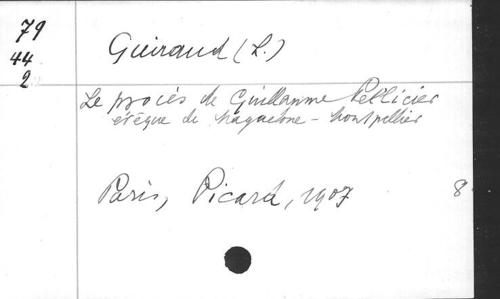 79
44
2
Guiraud (L.)
Le procès de Guillaume Pellicier
évêque de Maguelone - Montpellier
Paris, Picard, 1907
8